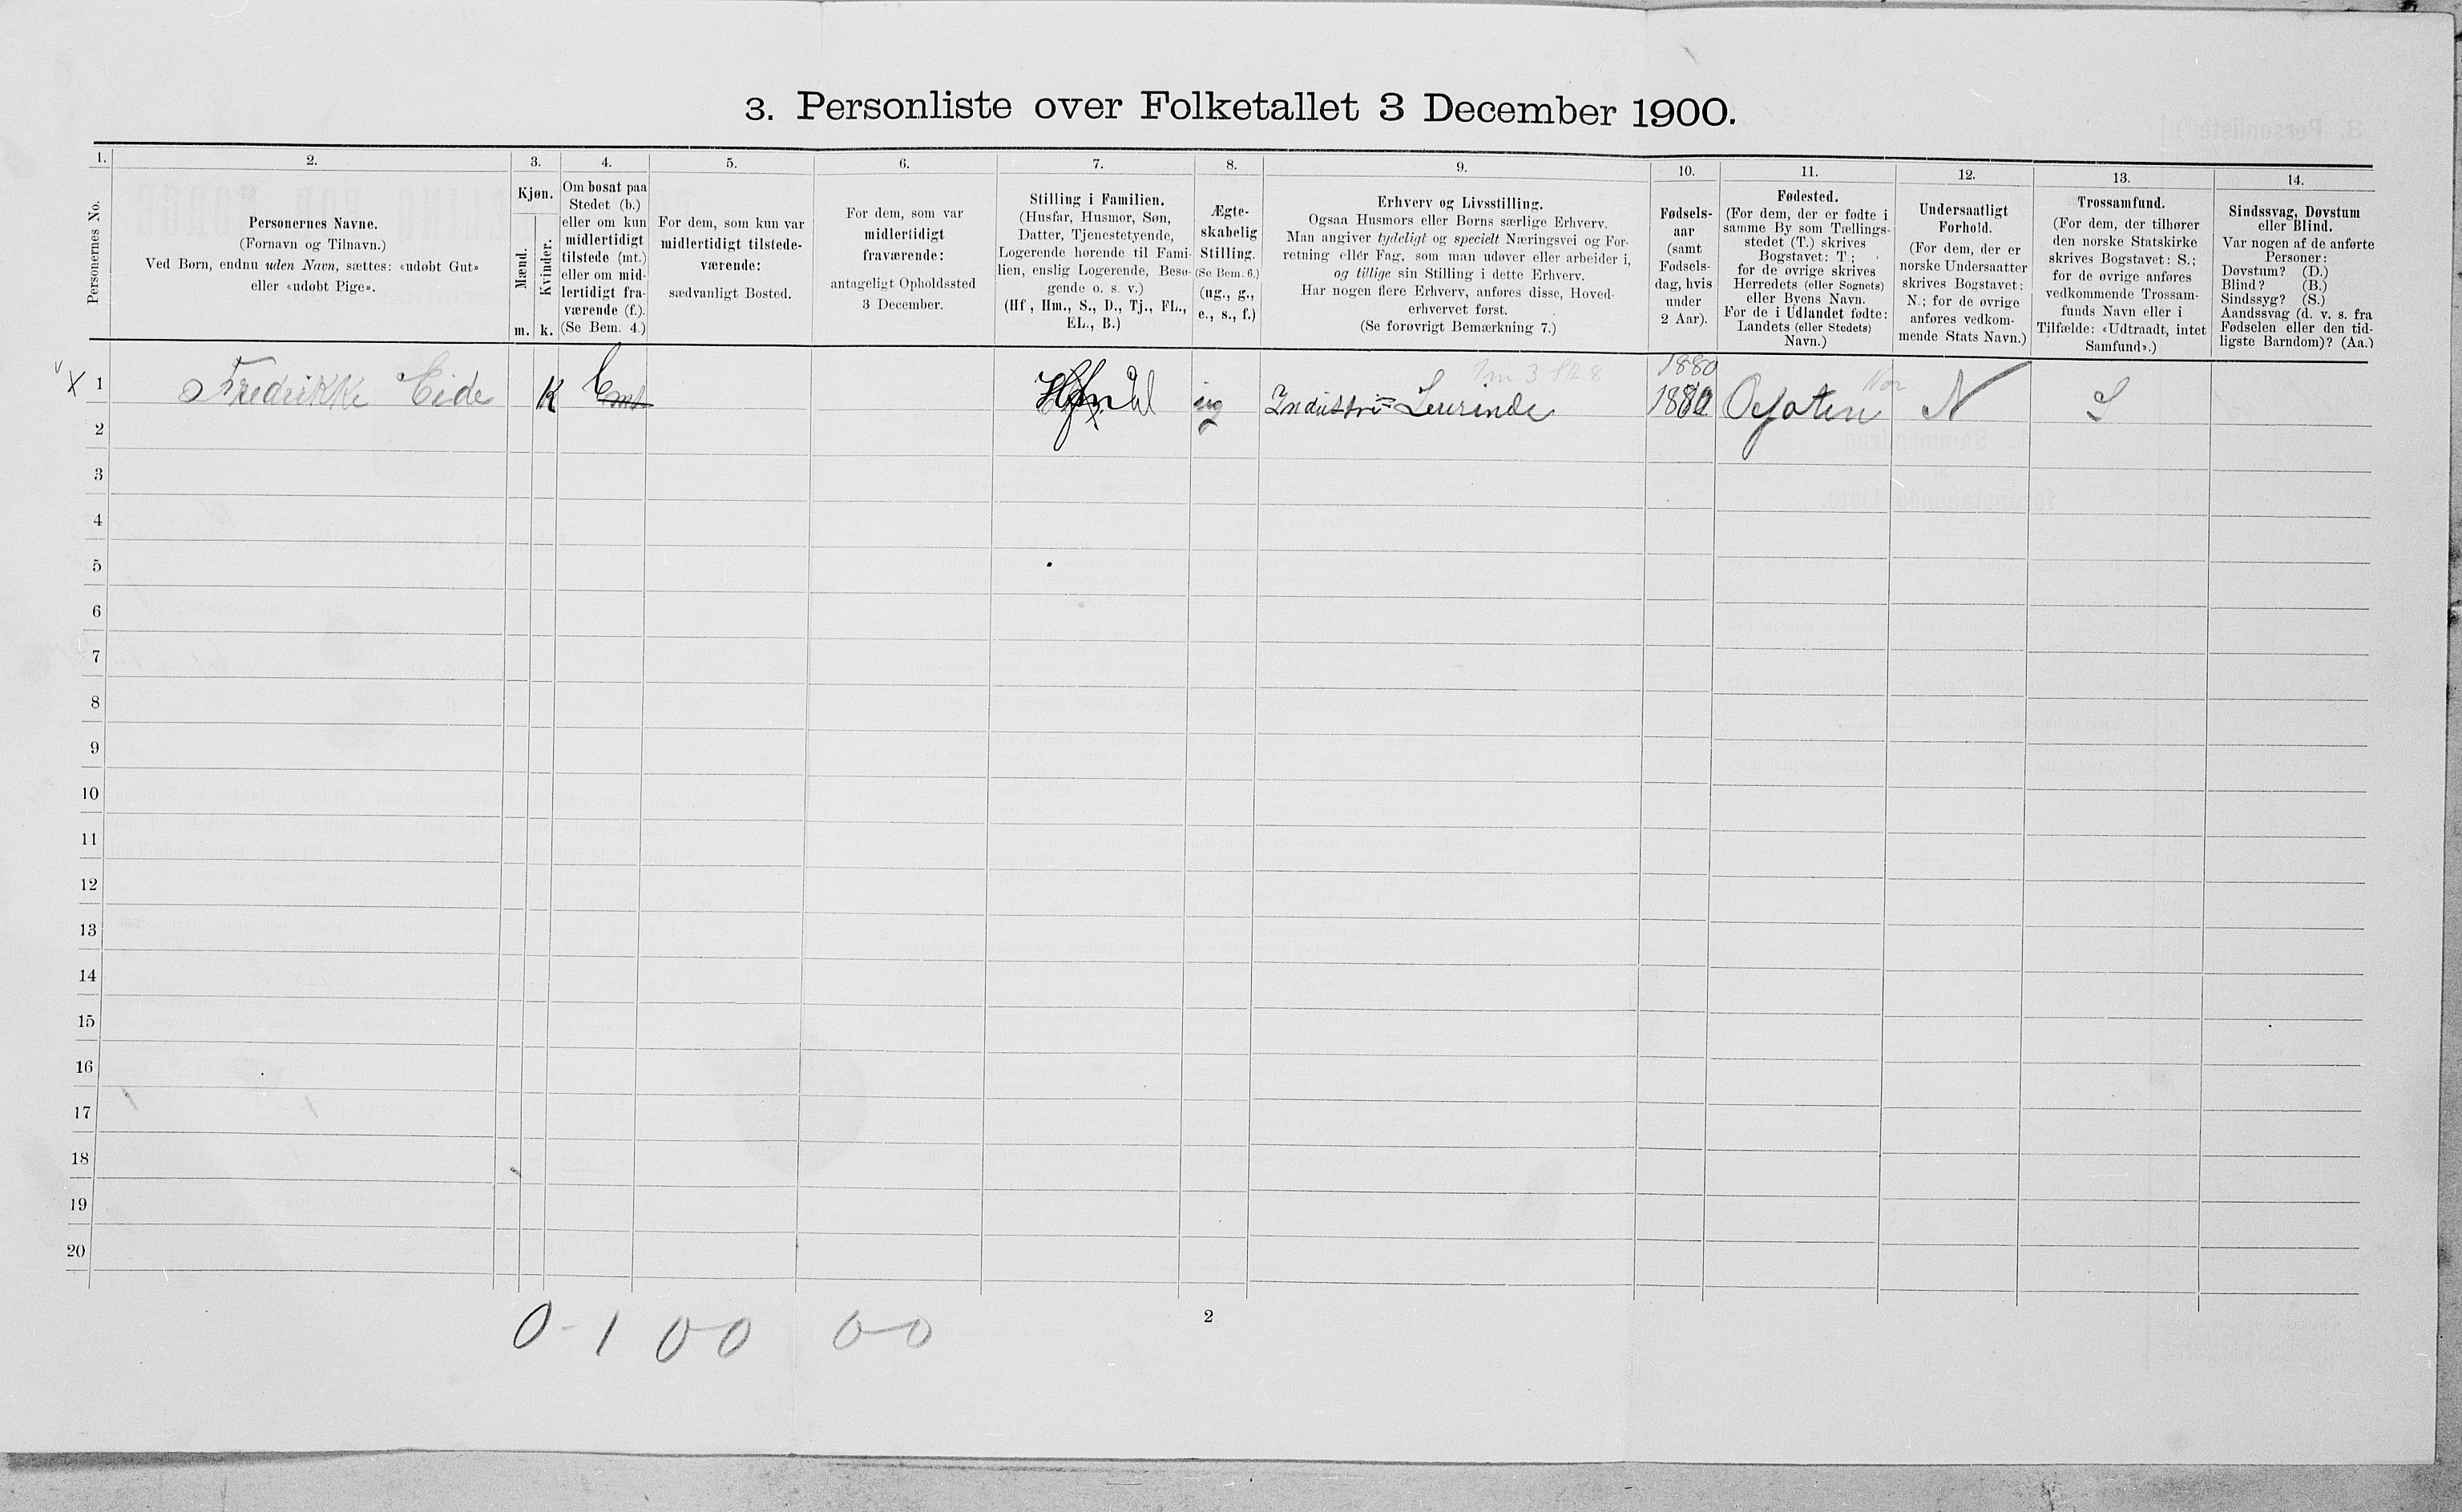 3. Personliste over Folketallet 3 December 1900.
1. 2. 3. 4. 5. 6. 7. 8. 9. 10. 11. 12. 13. 14.
Personernes No.
Personernes Navne.
(Fornavn og Tilnavn.)
Ved Børn, endnu uden Navn, sættes: «udøbt Gut»
eller «udøbt Pige».
Kjøn.
Mænd.
Kvinder.
m. k.
Om bosat paa
Stedet (b.)
eller om kun
midlertidigt
tilstede (mt.)
eller om mid-
lertidigt fra-
værende (f.).
(Se Bem. 4.)
For dem, som kun var
midlertidigt tilstede-
værende:
sædvanligt Bosted.
For dem, som var
midlertidigt
fraværende:
antageligt Opholdssted
3 December.
Stilling i Familien.
(Husfar, Husmor, Søn,
Datter, Tjenestetyende,
Logerende hørende til Fami-
lien, enslig Logerende, Besø-
gende o. s. v.)
(Hf., Hm., S., D., Tj., FL.,
EL., B.)
Ægte-
skabelig
Stilling.
(Se Bem. 6.)
(ug., g.,
e., s., f.)
Erhverv og Livsstilling.
Ogsaa Husmors eller Børns særlige Erhverv.
Man angiver tydeligt og specielt Næringsvei og For-
retning eller Fag, som man udøver eller arbeider i,
og tillige sin Stilling i dette Erhverv.
Har nogen flere Erhverv, anføres disse, Hoved-
erhvervet først.
(Se forøvrigt Bemærkning 7.)
Fødsels-
aar
(samt
Fødsels-
dag, hvis
under
2 Aar).
Fødested.
(For dem, der er fødte i
samme By som Tællings-
stedet (T.) skrives
Bogstavet: T.;
for de øvrige skrives
Herredets (eller Sognets)
eller Byens Navn.
For de i Udlandet fødte:
Landets (eller Stedets)
Navn.)
Undersaatligt
Forhold.
(For dem, der er
norske Undersaatter
skrives Bogstavet:
N.; for de øvrige
anføres vedkom-
mende Stats Navn.)
Trossamfund.
(For dem, der tilhører
den norske Statskirke
skrives Bogstavet: S.;
for de øvrige anføres
vedkommende Trossam-
funds Navn eller i
Tilfælde: «Udtraadt, intet
Samfund».)
Sindssvag, Døvstum
eller Blind.
Var nogen af de anførte
Personer:
Døvstum? (D.)
Blind? (B.)
Sindssyg? (S.)
Aandssvag (d. v. s. fra
Fødselen eller den tid-
ligste Barndom)? (Aa.)
1880
X 1 Fredrikke Eide K mt ug Industri= Lærerinde N S
2
3
4
5
6
7
8
9
10
11
12
13
14
15
16
17
18
19
20
0-1 00 0-0
2